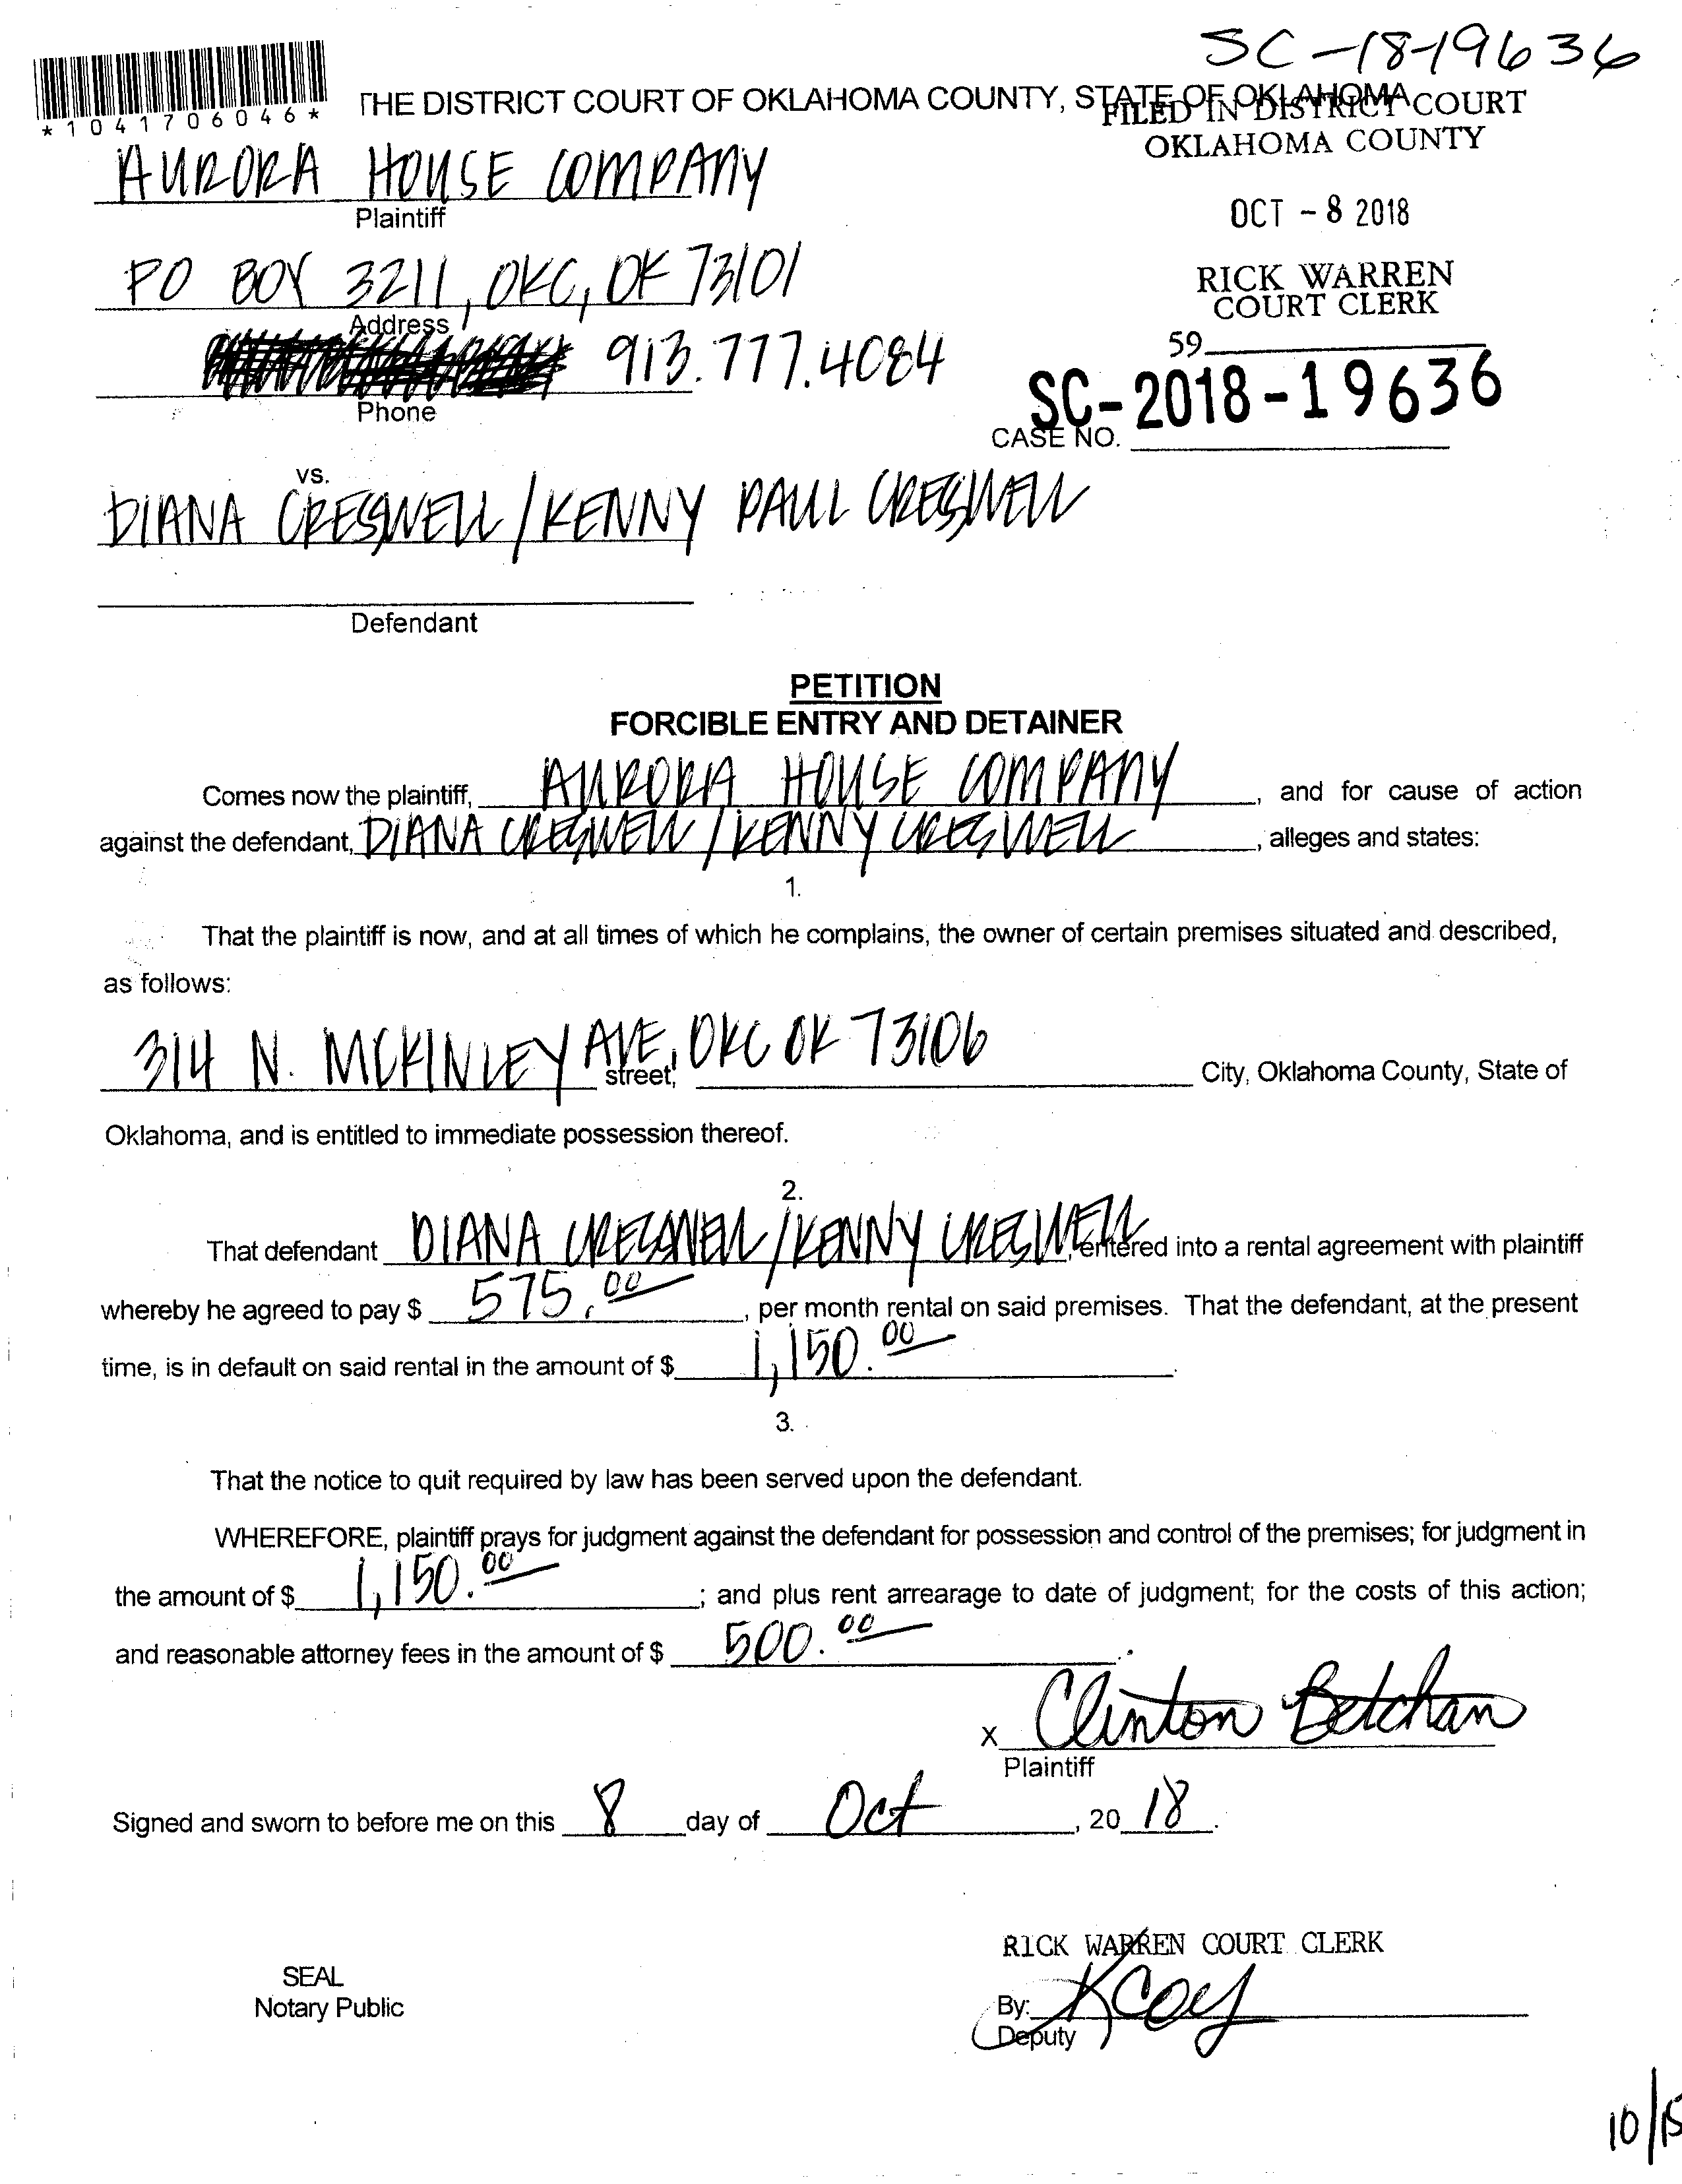 SC-18-19636
*1041706046*
THE DISTRICT COURT OF OKLAHOMA COUNTY, STATE OF OKLAHOMA
FILED IN DISTRICT COURT
OKLAHOMA COUNTY
AURORA HOUSE COMPANY
Plaintiff
OCT - 8 2018
PO BOX 3211, OKC, OK 73101
Address
RICK WARREN
COURT CLERK
913.777.4084
Phone
59
SC-2018-19636
CASE NO.
vs.
DIANA CRESWELL/KENNY PAUL CRESWELL
Defendant
PETITION
FORCIBLE ENTRY AND DETAINER
Comes now the plaintiff, AURORA HOUSE COMPANY, and for cause of action
against the defendant, DIANA CRESWELL/KENNY CRESWELL, alleges and states:
1.
That the plaintiff is now, and at all times of which he complains, the owner of certain premises situated and described,
as follows:
314 N. MCKINLEY AVE, OKC OK 73106
street, City, Oklahoma County, State of
Oklahoma, and is entitled to immediate possession thereof.
2.
That defendant DIANA CRESWELL/KENNY CRESWELL, entered into a rental agreement with plaintiff
whereby he agreed to pay $ 575.00, per month rental on said premises. That the defendant, at the present
time, is in default on said rental in the amount of $ 1,150.00.
3.
That the notice to quit required by law has been served upon the defendant.
WHEREFORE, plaintiff prays for judgment against the defendant for possession and control of the premises; for judgment in
the amount of $ 1,150.00; and plus rent arrearage to date of judgment; for the costs of this action;
and reasonable attorney fees in the amount of $ 500.00.
X Clinton Betchan
Plaintiff
Signed and sworn to before me on this 8 day of Oct, 20 18.
RICK WARREN COURT CLERK
SEAL
Notary Public
By: KCoy
Deputy
10/15